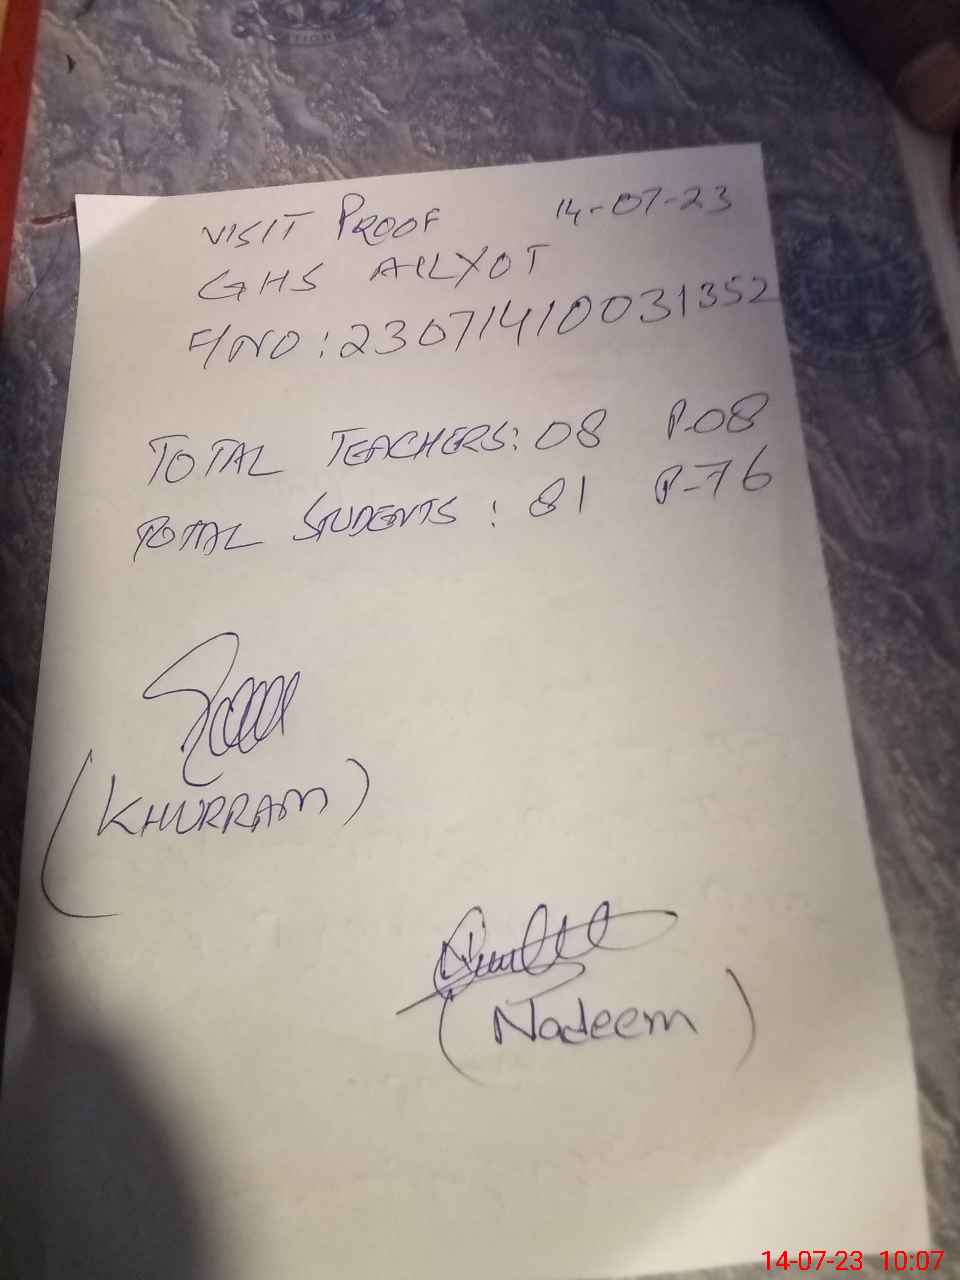 VISIT PROOF 14-07-23
GHS ALYOT
F/NO: 23071410031352
TOTAL TEACHERS: 08 P-08
TOTAL STUDENTS: 81 P-76
(KHURRAM)
(Nadeem)
14-07-23 10:07